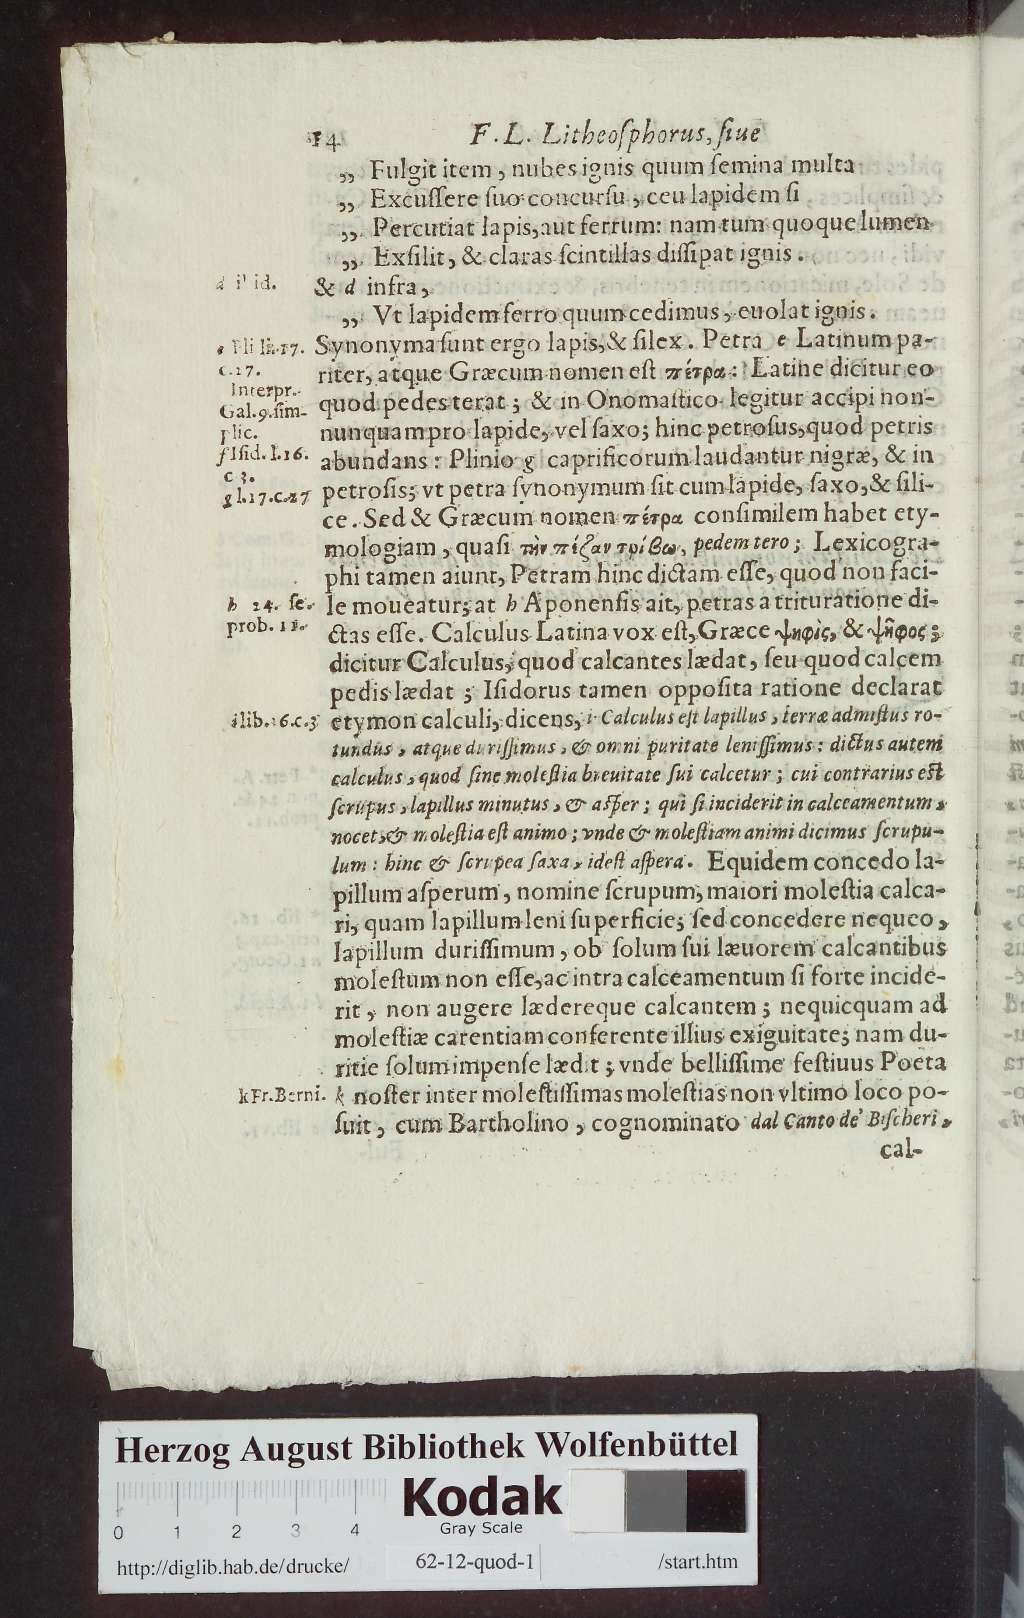 14 F. L. Litheoſphorus, ſiue
„ Fulgit item, nubes ignis quum ſemina multa
„ Excuſſere ſuo concurſu, ceu lapidem ſi
„ Percutiat lapis, aut ferrum: nam tum quoque lumen
„ Exſilit, & claras ſcintillas diſſipat ignis.
d ibid.
& d infra,
„ Vt lapidem ferro quum cedimus, euolat ignis.
e Pli li.17.
c.27.
Interpr.
Gal.9.ſim-
plic.
Synonyma ſunt ergo lapis, & ſilex. Petra e Latinum pa-
riter, atque Græcum nomen eſt πέτρα: Latine dicitur eo
quod pedes terat; & in Onomaſtico legitur accipi non-
nunquam pro lapide, vel ſaxo; hinc petroſus, quod petris
f Iſid. l.16.
c 3.
g l.17.c.27
abundans: Plinio g caprificorum laudantur nigræ, & in
petroſis; vt petra ſynonymum ſit cum lapide, ſaxo, & ſili-
ce. Sed & Græcum nomen πέτρα conſimilem habet ety-
mologiam, quaſi τὴν πέζαν τρίβω, pedem tero; Lexicogra-
phi tamen aiunt, Petram hinc dictam eſſe, quod non faci-
h 24. ſe.
prob. 11.
le moueatur; at h Aponenſis ait, petras a trituratione di-
ctas eſſe. Calculus Latina vox eſt, Græce ψηφὶς, & ψῆφος;
dicitur Calculus, quod calcantes lædat, ſeu quod calcem
pedis lædat; Iſidorus tamen oppoſita ratione declarat
i lib.16.c.3
etymon calculi, dicens, i Calculus eſt lapillus, terræ admiſtus ro-
tundus, atque duriſſimus, & omni puritate leniſſimus: dictus autem
calculus, quod ſine moleſtia breuitate ſui calcetur; cui contrarius eſt
ſcrupus, lapillus minutus, & aſper; qui ſi inciderit in calceamentum,
nocet, & moleſtia eſt animo; vnde & moleſtiam animi dicimus ſcrupu-
lum: hinc & ſcrupea ſaxa, ideſt aſpera. Equidem concedo la-
pillum aſperum, nomine ſcrupum, maiori moleſtia calca-
ri, quam lapillum leni ſuperficie; ſed concedere nequeo,
lapillum duriſſimum, ob ſolum ſui læuorem calcantibus
moleſtum non eſſe, ac intra calceamentum ſi forte incide-
rit, non augere lædereque calcantem; nequicquam ad
moleſtiæ carentiam conferente illius exiguitate; nam du-
ritie ſolum impenſe lædit; vnde belliſſime feſtiuus Poeta
k Fr. Berni.
k noſter inter moleſtiſſimas moleſtias non vltimo loco po-
ſuit, cum Bartholino, cognominato dal Canto de' Biſcheri,
cal-
Herzog August Bibliothek Wolfenbüttel
Kodak
Gray Scale
0 1 2 3 4
http://diglib.hab.de/drucke/ 62-12-quod-1 /start.htm